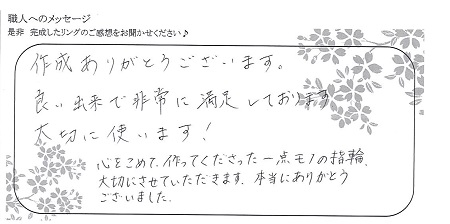 職人へのメッセージ
是非 完成したリングのご感想をお聞かせください♪
作成ありがとうございます。
良い出来で非常に満足しております
大切に使います!
心をこめて、作ってくださった一点モノの指輪、
大切にさせていただきます。本当にありがとう
ございました。